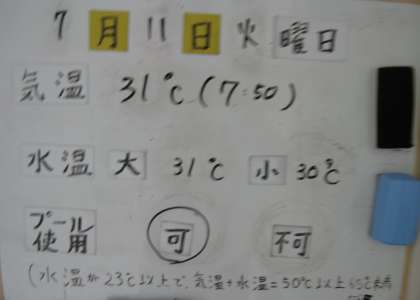 7月11日火曜日
気温 31℃(7:50)
水温 大 31℃ 小 30℃
プール使用 可 不可
(水温が23℃以上で、気温+水温=50℃以上65℃未満